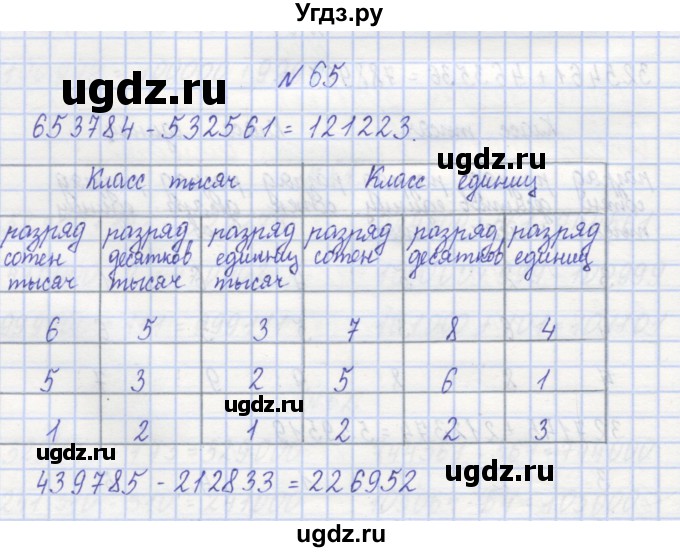 Угдз.ру
№ 65.
ugdz.ru
653784 - 532561 = 121223.
ugdz.ru
Класс тысяч Класс единиц
разряд разряд разряд разряд разряд разряд
сотен десятков единиц сотен десятков единиц
тысяч тысяч тысяч
6 5 3 7 8 4
5 3 2 5 6 1
ugdz.ru
1 2 1 2 2 3
ugdz.ru
439785 - 212833 = 226952
ugdz.ru ugdz.ru